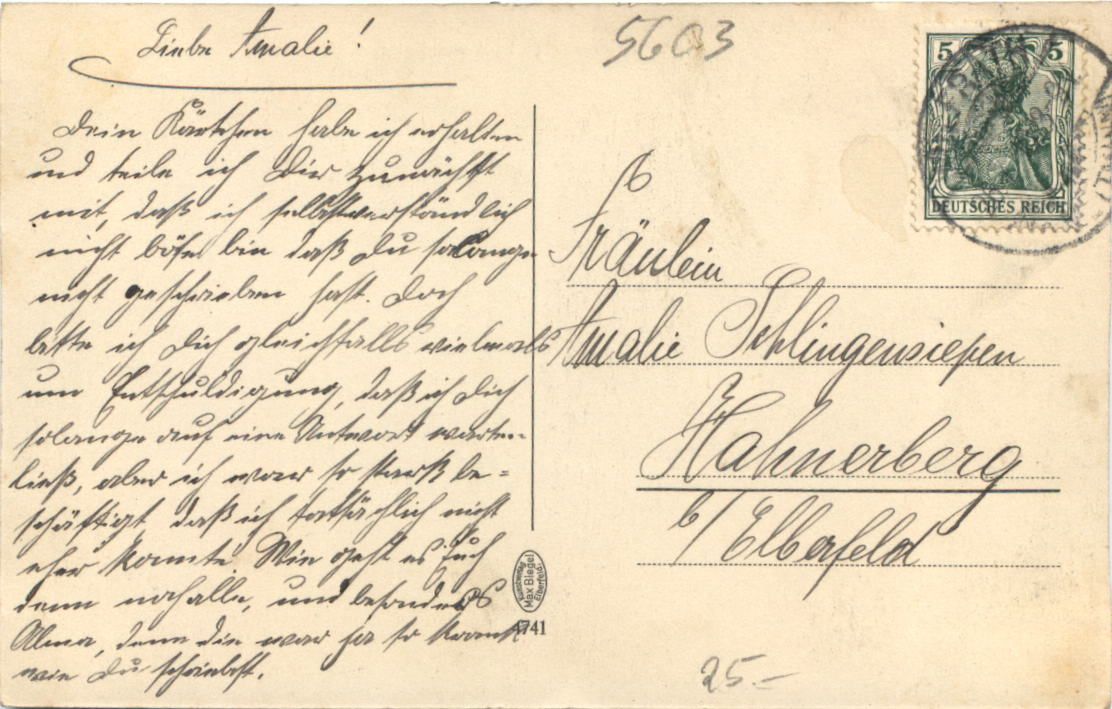 Liebe Amalie!
Dein Kärtchen habe ich erhalten
und teile ich Dir zunächst
mit, daß ich selbstverständlich
nicht böse bin daß Du solange
nicht geschrieben hast. Doch
bitte ich Dich gleichfalls vielmals
um Entschuldigung, daß ich Dich
solange auf eine Antwort warten
ließ, aber ich war so stark be-
schäftigt, daß ich tatsächlich nicht
eher konnte. Wie geht es Euch
denn noch alle, und besonders
Alma, denn die war ja so krank
wie Du schriebst.
5603
5 5
DEUTSCHES REICH
Fräulein
Amalie Schlingensiepen
Hahnerberg
b/Elberfeld
Max Biegel
Elberfeld
4741
25.-